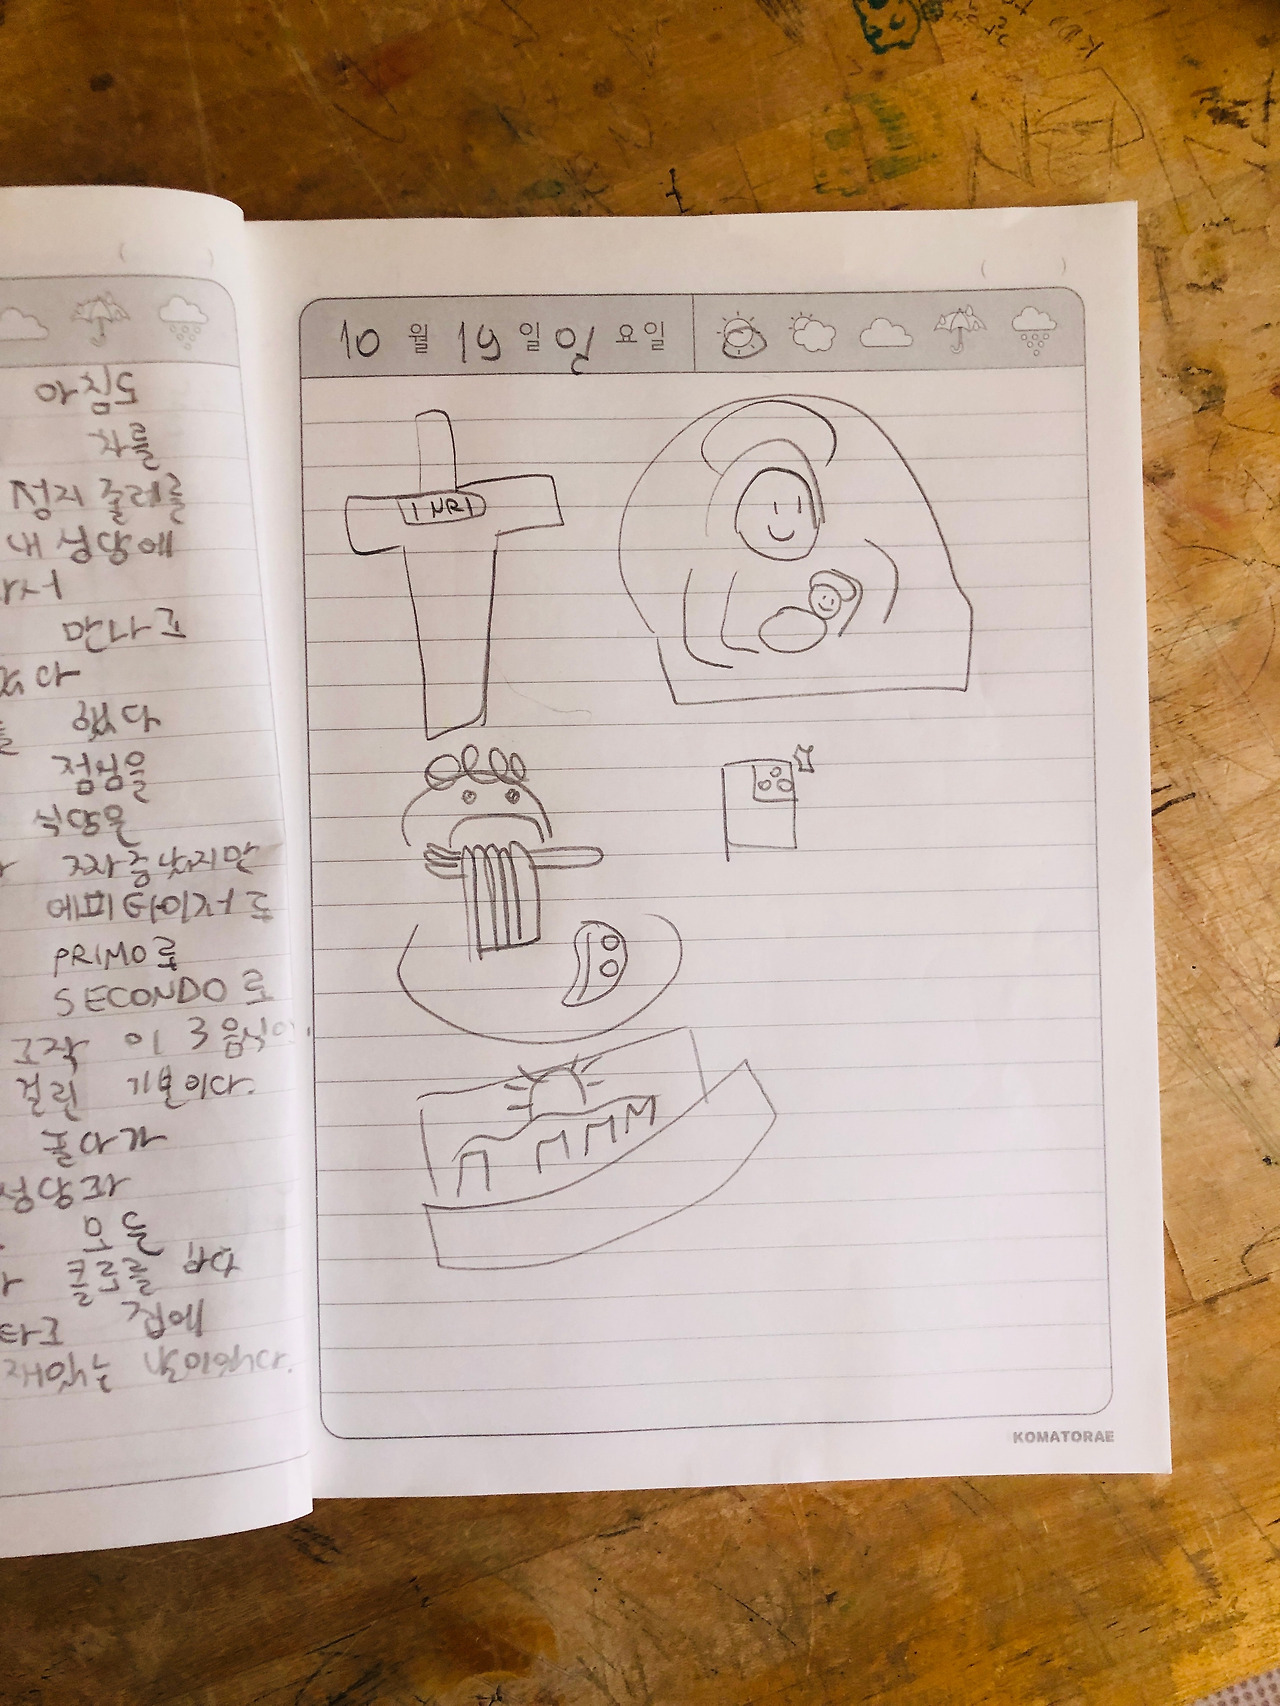 아침도
차를
정지 줄레를
내 성당에
만나고
했다
점심을
식당을
지만
에피타이저로
PRIMO로
SECONDO로
조각 이 3음식이
걸린 기본이다.
돌아가
성당과
모듈
타고 집에
재있는 날이었다.
10월 19일 일요일
INRI
KOMATORAE